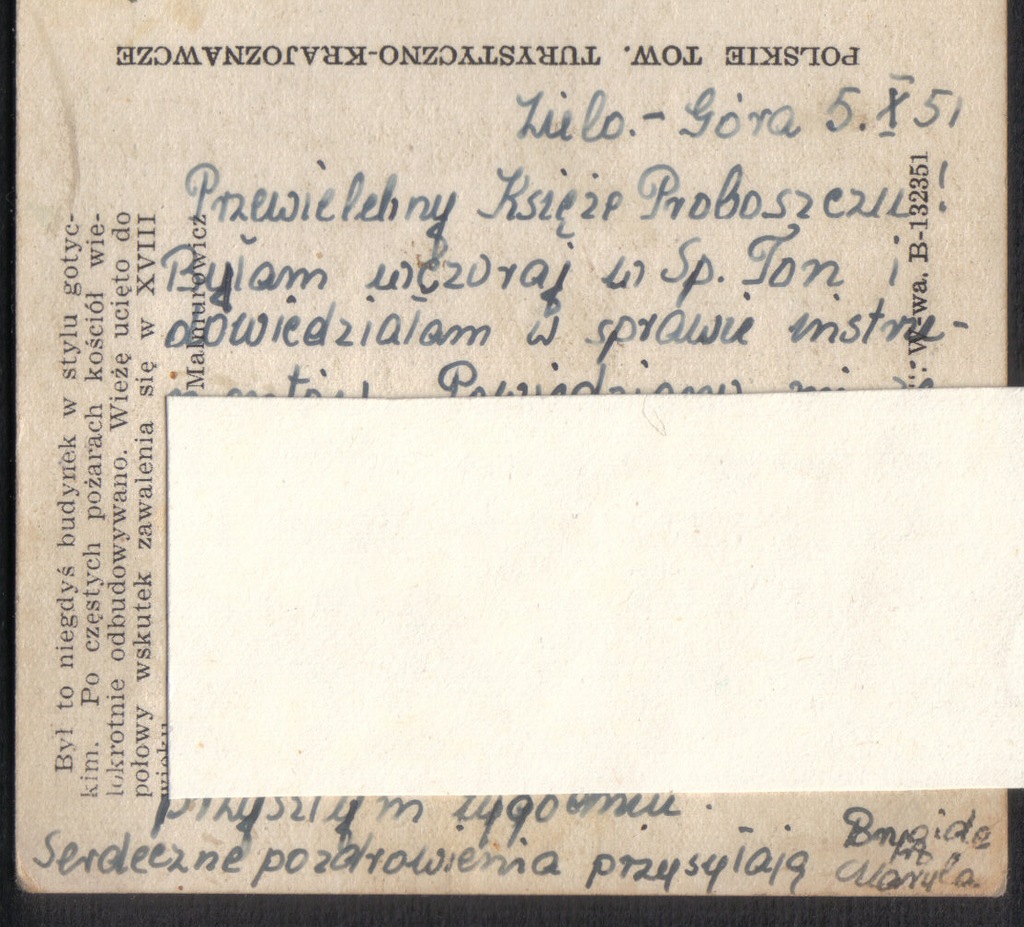 POLSKIE TOW. TURYSTYCZNO-KRAJOZNAWCZE
Zielo.- Góra 5.X 51
Przewielebny Księże Proboszczu!
Byłam wczoraj w Sp. Ton i
dowiedziałam w sprawie instru-
mentów. Powiedziano mi że
przyszłym tygodniu.
Serdeczne pozdrowienia przysyłają
Brygida
Maryla
Był to niegdyś budynek w stylu gotyc-
kim. Po częstych pożarach kościół wie-
lokrotnie odbudowywano. Wieżę ucięto do
połowy wskutek zawalenia się w XVIII
wieku
W-wa. B-132351